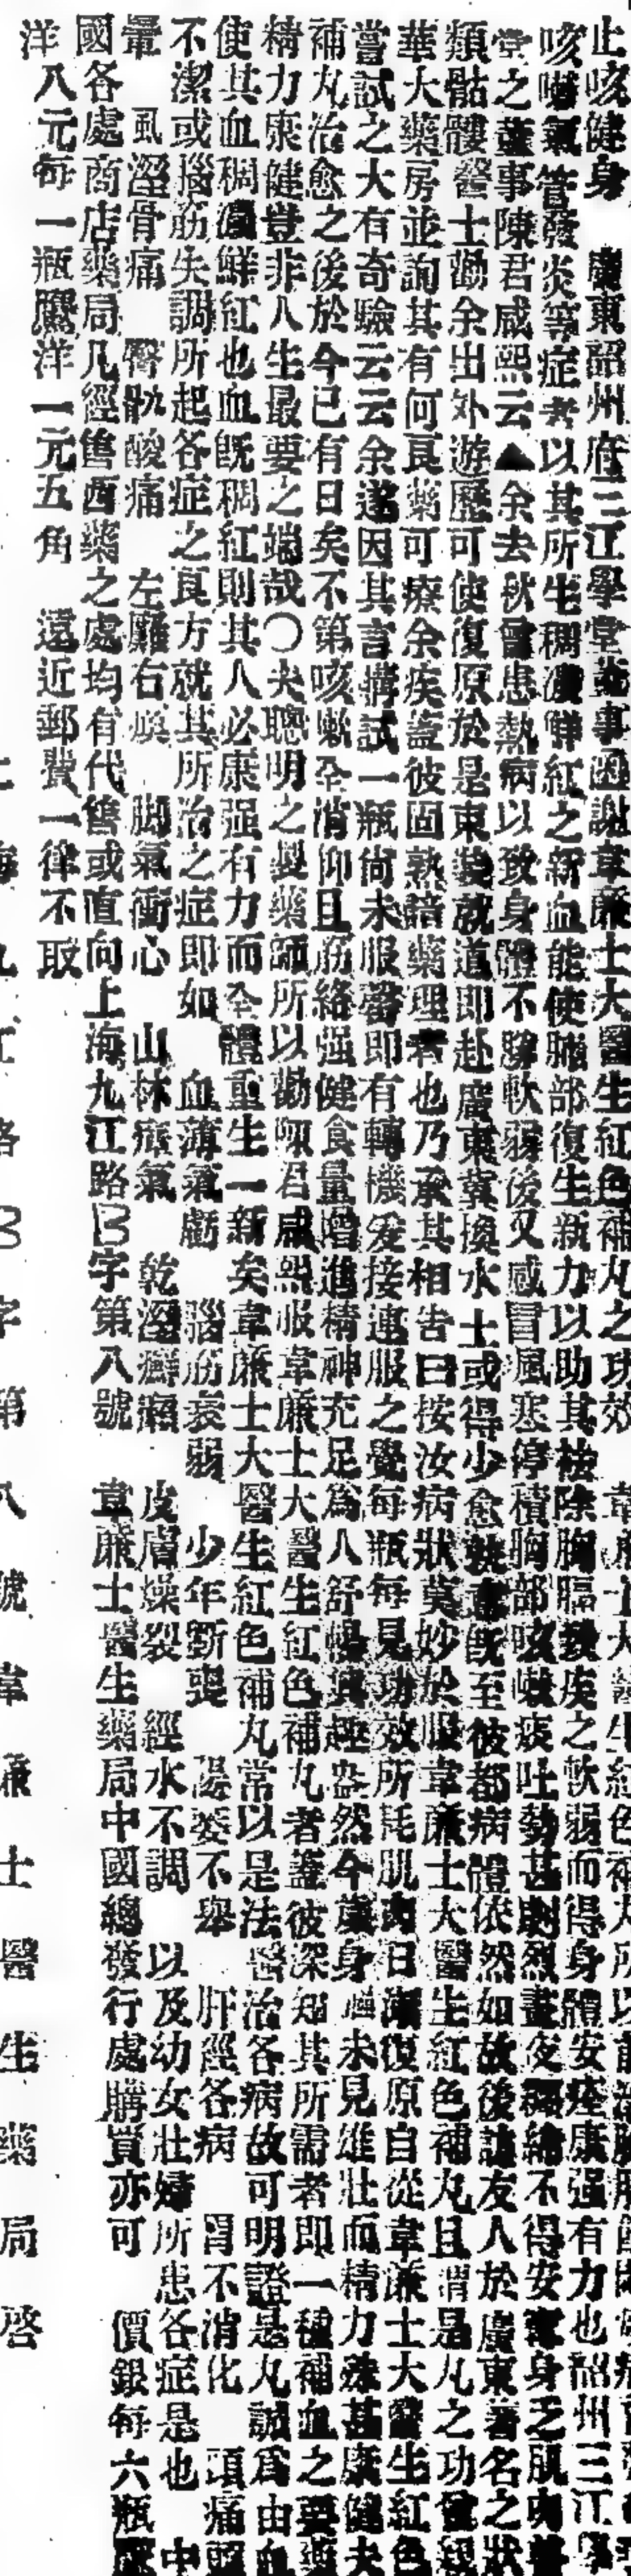 止咳健身　廣東韶州府三江學堂董事函謝韋廉士大醫生紅色補丸之功效　韋廉士大醫生紅色補丸所以能治
咳嗽氣管發炎等症者以其所生稠濃鮮紅之新血能使肺部復生新力以助其祛除胸膈致疾之軟弱而得身體安痊康强有力也韶州三江學
堂之董事陳君咸熙云▲余去秋曾患熱病以致身體不勝軟弱後又感冒風寒停積胸部咳嗽痰吐勢甚劇烈晝夜不得安身之肌肉
類骷髏醫士勸余出外遊歷可使復原於是束裝就道即赴廣東冀換水土或得少愈既至彼都病體依然如故後訪友人於廣東著名之
華大藥房並詢其有何良藥可療余疾蓋彼固熟諳藥理者也乃承其相告曰按汝病狀莫妙於服韋廉士大醫生紅色補丸且謂是丸之功曾親
嘗試之大有奇驗云云余遂因其言購試一瓶尚未服罄即有轉機爰接連服之覺每瓶每見功效所耗肌肉日漸復原自從韋廉士大醫生紅色
補丸治愈之後於今已有日矣不第咳嗽全消仰且筋絡强健食量增進精神充足爲人舒暢眞趣盎然今雖身軀未見雄壯而精力殊甚康健夫
精力康健豈非人生最要之端哉〇夫聰明之製藥師所以勸陳君咸熙服韋廉士大醫生紅色補丸者蓋彼深知其所需者即一種補血之要藥
使其血稠濃鮮紅也血既稠紅則其人必康强有力而全體重生一新矣韋廉士大醫生紅色補丸常以是法醫治各病故可明證是丸誠爲由血
不潔或腦筋失調所起各症之良方就其所治之症即如　血薄氣虧　腦筋衰弱　少年斲喪　陽萎不舉　肝經各病　胃不消化　頭痛頭
暈　風溼骨痛　臀肋酸痛　左癱右瘓　脚氣衝心　山林瘴氣　乾溼癬癩　皮膚燥裂　經水不調　以及幼女壯婦所患各症是也　中
國各處商店藥局凡經售西藥之處均有代售或直向上海九江路B字第八號　韋廉士醫生藥局中國總發行處購買亦可　價銀每六瓶
洋八元每一瓶鷹洋一元五角　遠近郵費一律不取
上海九江路B字第八號韋廉士醫生藥局啓